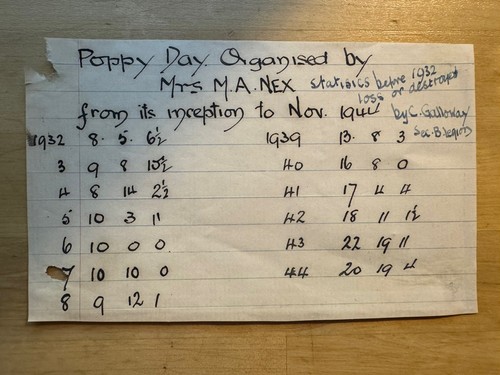 Poppy Day. Organised by
Mrs M.A. NEX
statistics before 1932
loss or destroyed
from its inception to Nov. 1944
by C. Galloway
Sec. B. Legion
1932 8. 5. 6½
3 9 8 10½
4 8 14 2½
5 10 3 1
6 10 0 0
7 10 10 0
8 9 12 1
1939 13. 8 3
40 16 8 0
41 17 4 4
42 18 11 1½
43 22 19 11
44 20 19 4